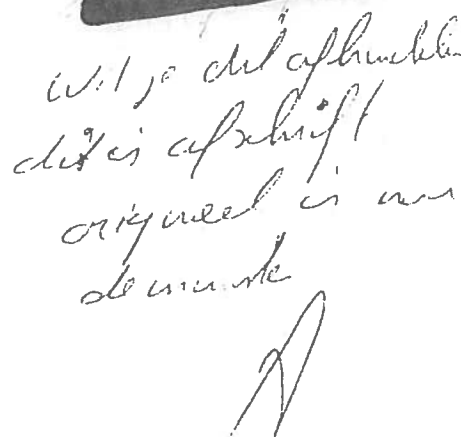 Wil je dit afhandelen
dit is afschrift
origineel is naar